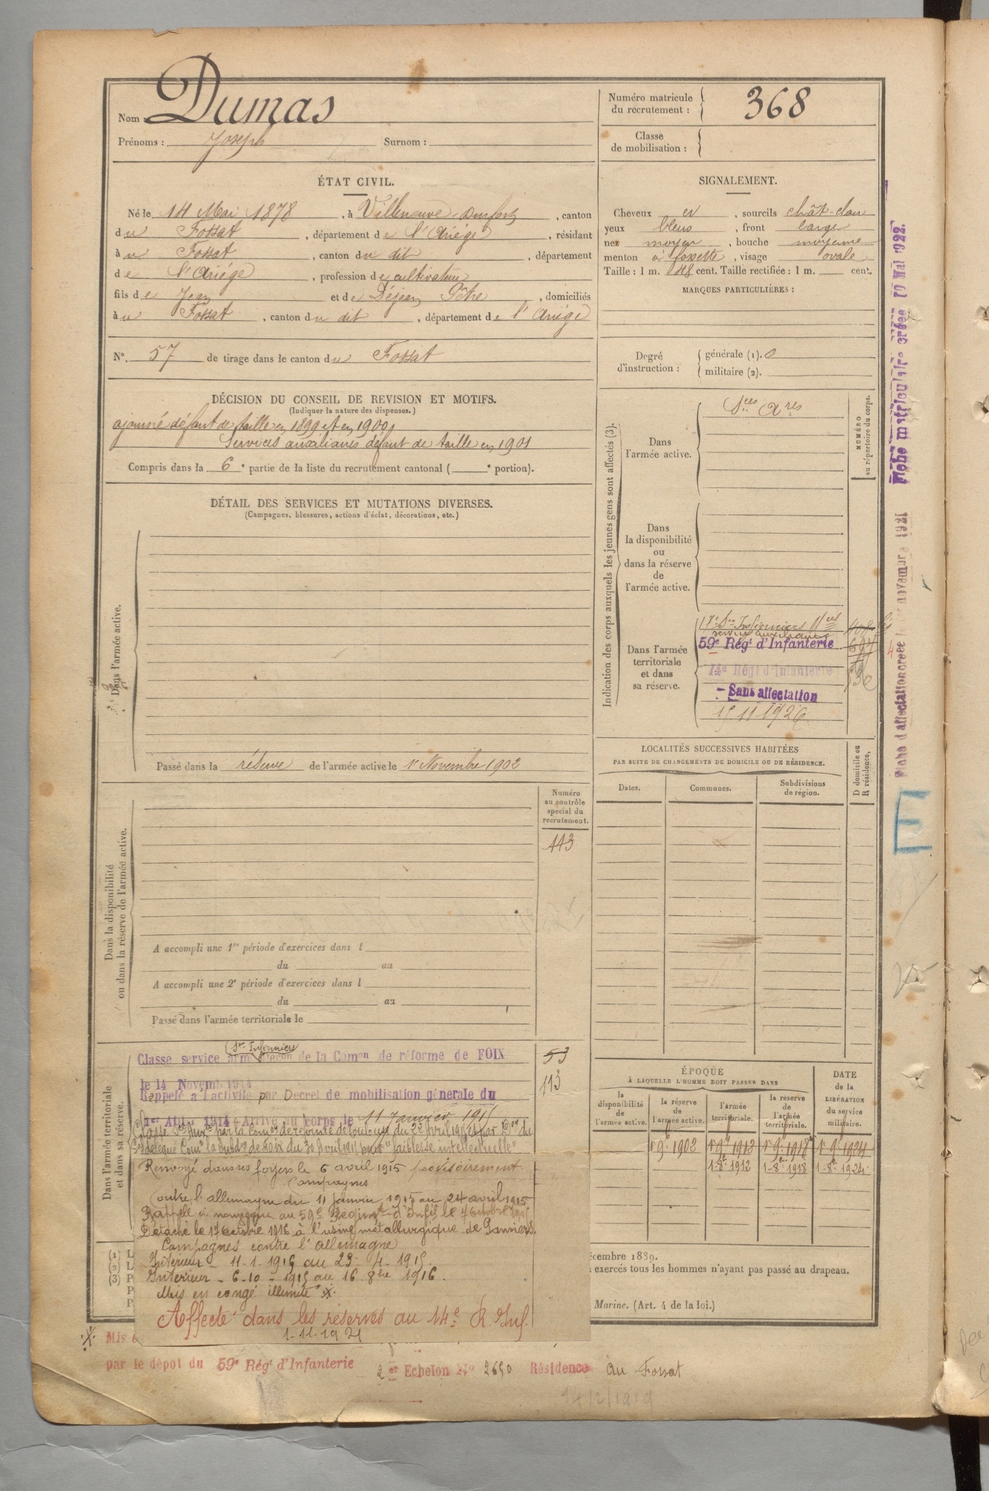 Nom : Dumas
Prénoms : Joseph Surnom :
Numéro matricule du recrutement : 368
Classe de mobilisation :
ÉTAT CIVIL.
Né le 14 Mai 1878, à Villeneuve Durfort, canton
du Fossat, département de l'Ariège, résidant
à u Fossat, canton du dit, département
de l'Ariège, profession de cultivateur
fils de Jean et de Déjean, domiciliés
à u Fossat, canton du dit, département de l'Ariège
N° 57 de tirage dans le canton du Fossat
SIGNALEMENT.
Cheveux et, sourcils chât-clair
yeux bleus, front large
nez moyen, bouche moyenne
menton à fossette, visage ovale
Taille : 1 m. cent. Taille rectifiée : 1 m. cent.
MARQUES PARTICULIÈRES :
Degré d'instruction : générale (1). 0
militaire (2).
DÉCISION DU CONSEIL DE REVISION ET MOTIFS.
(Indiquer la nature des dispenses.)
ajourné défaut de taille en 1899 et en 1900,
Services auxiliaires défaut de taille en 1901
Compris dans la 6e partie de la liste du recrutement cantonal ( e portion).
DÉTAIL DES SERVICES ET MUTATIONS DIVERSES.
(Campagnes, blessures, actions d'éclat, décorations, etc.)
Dans l'armée active.
Passé dans la réserve de l'armée active le 1er Novembre 1902
Indication des corps auxquels les jeunes gens sont affectés (3).
NUMÉRO au répertoire du corps.
Dans l'armée active.
Sces Axres
Dans la disponibilité ou dans la réserve de l'armée active.
Dans l'armée territoriale et dans sa réserve.
service auxiliaire
59e Régt d'Infanterie
14e Régt d'Infanterie
- Sans affectation
15 11 1926
LOCALITÉS SUCCESSIVES HABITÉES
PAR SUITE DE CHANGEMENTS DE DOMICILE OU DE RÉSIDENCE.
Dates.
Communes.
Subdivisions de région.
D domicile ou R résidence.
Dans la disponibilité ou dans la réserve de l'armée active.
Numéro au contrôle spécial du recrutement.
113
A accompli une 1re période d'exercices dans l
du au
A accompli une 2e période d'exercices dans l
du au
Passé dans l'armée territoriale le
53
113
Dans l'armée territoriale et dans sa réserve.
Classe service armé de la Comon de réforme de FOIX
le 14 Novemb 1914
Rappelé à l'activité par Décret de mobilisation générale du
1er Août 1914 - Arrivé au corps le 11 Janvier 1915
Renvoyé dans ses foyers le 6 avril 1915 provisoirement
Campagnes
Contre l'allemagne du 11 Janvier 1915 au 24 avril 1915
Détaché le 17 Octobre 1916 à l'usine métallurgique de Pamiers
Campagnes contre l'allemagne
Intérieur - 11-1-1915 au 23-4-1915
Intérieur - 6-10-1915 au 16-8bre 1916.
Mis en congé illimité
Affecté dans les réserves au 14e R. Inf.
1-11-1921
ÉPOQUE
À LAQUELLE L'HOMME DOIT PASSER DANS
la disponibilité de l'armée active.
la réserve de l'armée active.
l'armée territoriale.
la réserve de l'armée territoriale.
DATE de la LIBÉRATION du service militaire.
1er 9bre 1902
1-8bre 1912
1-8bre 1918
1-8bre 1924
décembre 1889.
exercés tous les hommes n'ayant pas passé au drapeau.
Marine. (Art. 4 de la loi.)
par le dépôt du 59e Régt d'Infanterie
2er Echelon N° 2690 Résidence au Fossat
14/2/1919
Fiche matriculaire créée 10 Mai 1922
Fiche d'affectation créée novembre 1921
E